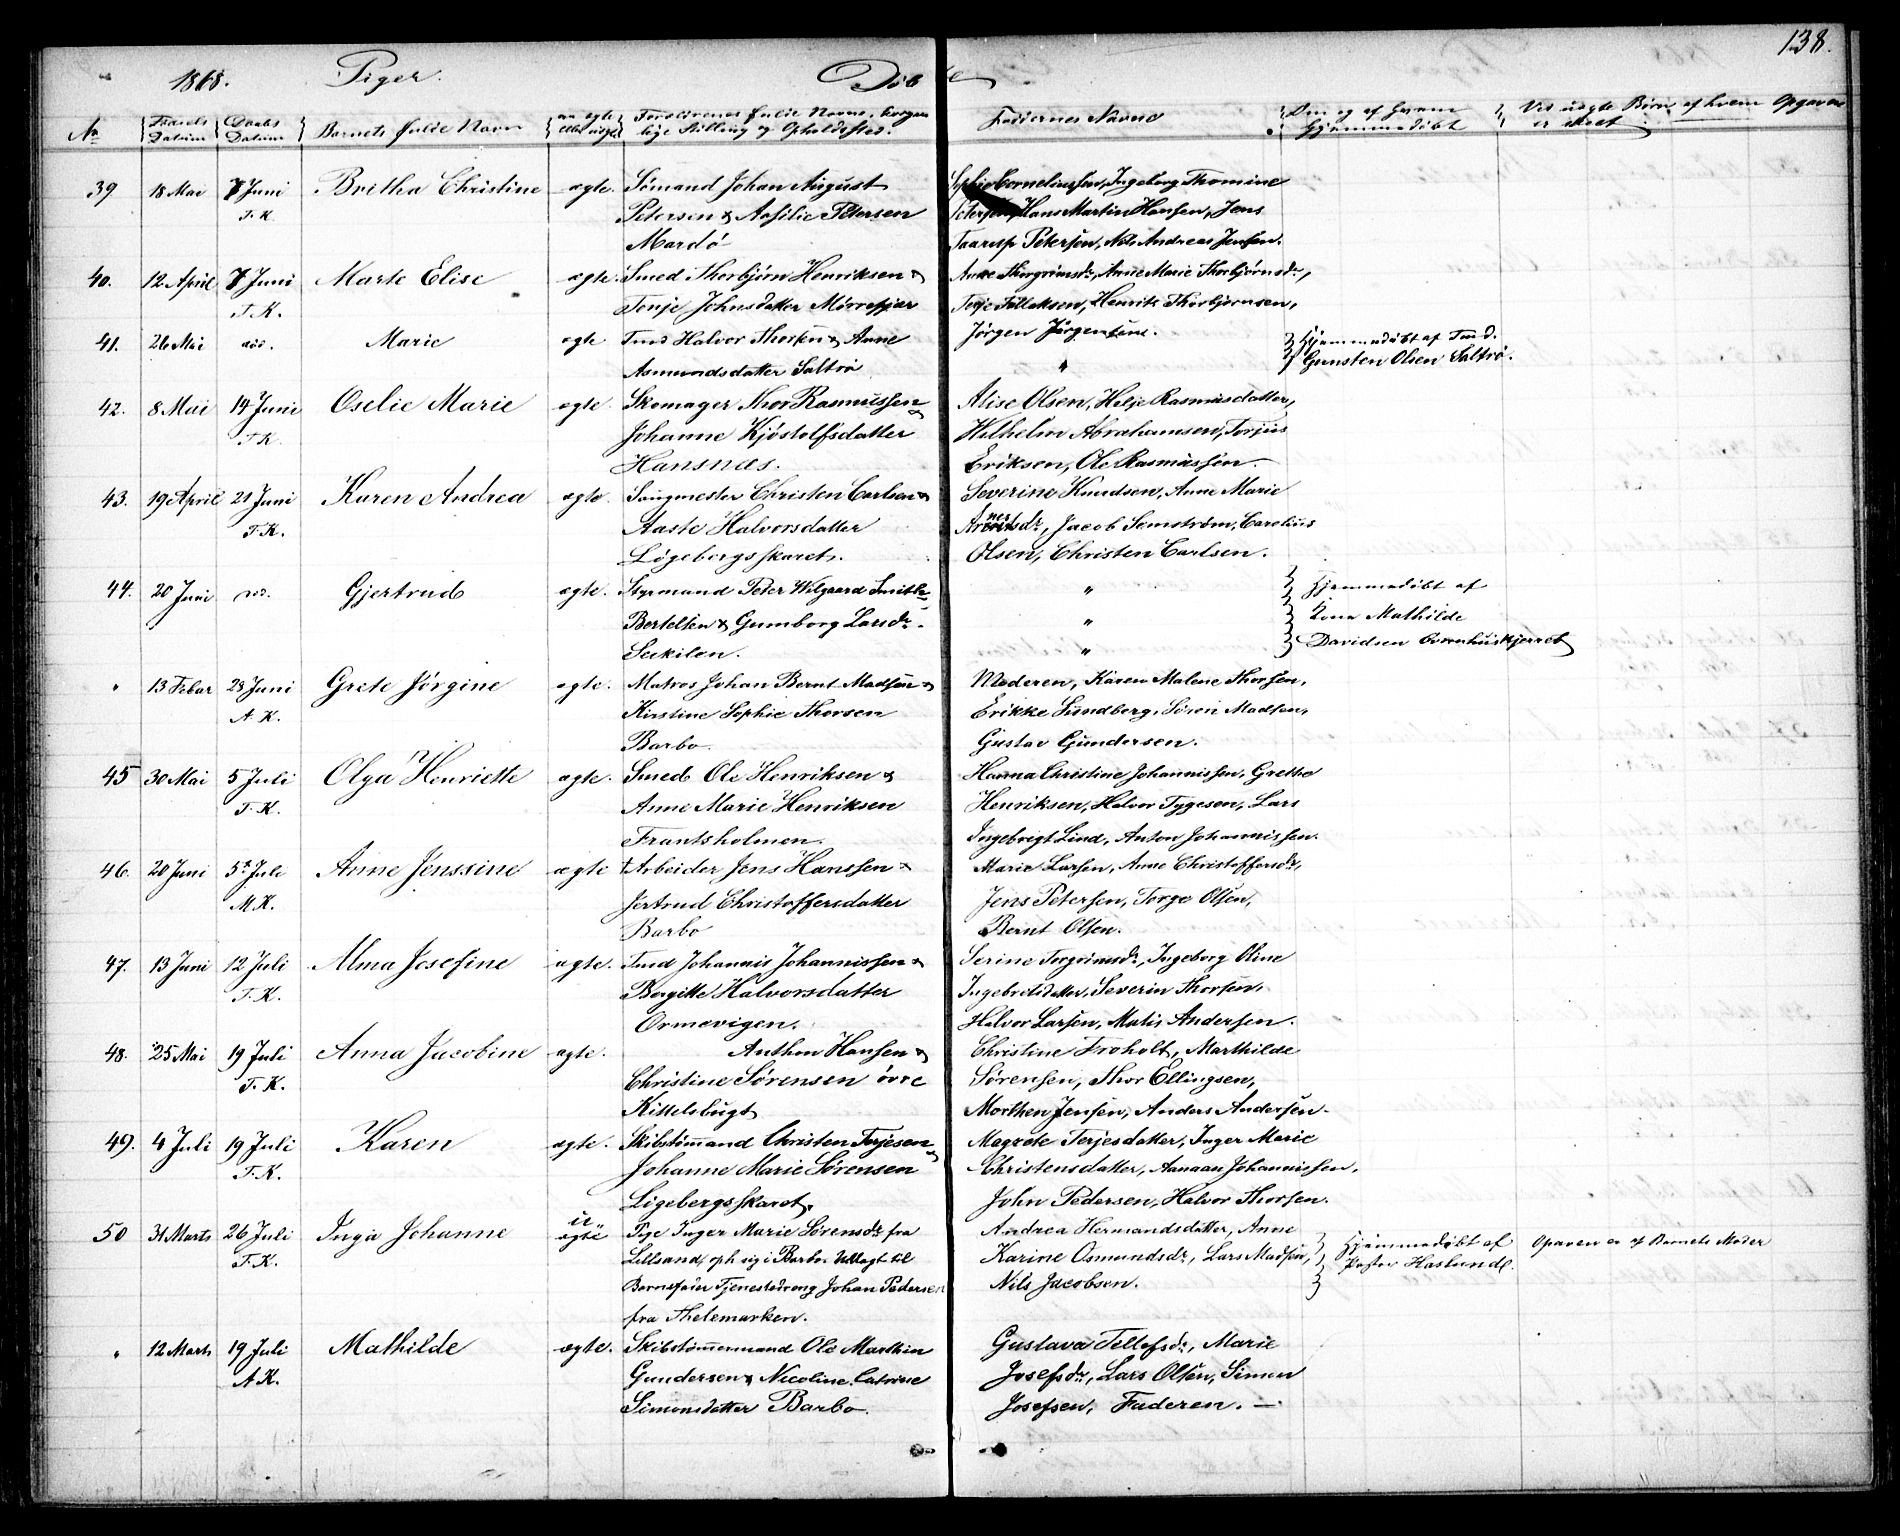 138.
1868. Piger. Döbte
No Fødsels Datum Daabs Datum Barnets fulde Navn om ægte eller uægte Forældrenes fulde Navne, borgerlige Stilling og Opholdssted. Faddernes Navne Om og af hvem Hjemmedøbt Vis uægte Børn af hvem Opgaven er skeet
39 18 Mai 7 Juni Britha Christine ægte. Sömand Johan August
T. K. Petersen & Aasilie Petersen
Mardö
Corneliussen, Ingeborg Thomine
Petersen, Hans Martin Hansen, Jens
Taarup Petersen, Nils Andreas Jensen.
40. 12 April 7 Juni Marte Elise ægte. Smed Thorbjörn Henriksen &
T. K. Tonje Johnsdatter Mörrefjær
Anne Thorgrimsdr, Anne Marie Thorbjörnsdr,
Terje Tellaksen, Henrik Thorbjörnsen,
Jörgen Jörgensens.
41. 26 Mai Marie ægte Tmd Halvor Thorsen & Anne
Asmundsdatter Saltrö
" Hjemmedöbt af Tmd.
Gunsten Olsen Saltrö.
42. 8 Mai 14 Juni Oselie Marie ægte. Skomager Thor Rasmussen &
T. K. Johanne Kjöstolfsdatter
Hansnæs.
Alise Olsen, Helje Rasmusdatter,
Wilhelm Abrahamsen, Torjus
Eriksen, Ole Rasmussen.
43. 19 April 21 Juni Karen Andrea ægte Saugmester Christen Carlsen &
T. K. Aaste Halvorsdatter
Lögebergsskaret.
Severine Knudsen, Anne Marie
Arentsdr, Jacob Semström, Carolius
Olsen, Christen Carlsen.
44. 20 Juni Gjertrud ægte. Styrmand Peter Wilgaard Smith
Bertelsen & Gumborg Larsdr.
Seekilen.
" Hjemmedöbt af
" Lona Mathilde
" Davidsen
" 13 Febar 28 Juni Grete Jörgine ægte. Matros Johan Bernt Madsen &
A. K. Kirstine Sophie Thorsen
Barbo.
Moderen, Karen Malene Thorsen,
Erikke Lundberg, Sören Madsen,
Gustav Gundersen.
45 30 Mai 5 Juli Olga Henriette ægte. Smed Ole Henriksen &
T. K. Anne Marie Henriksen
Frantsholmen.
Hanna Christine Johannissen, Grethe
Henriksen, Halvor Tygesen, Lars
Ingebrigt Lind, Anton Johannissen.
46. 20 Juni 5t Juli Anne Jenssine ægte Arbeider Jens Hanssen &
M. K. Jertrud Christoffersdatter
Barbo
Marie Larsen, Anne Christoffersdr,
Jens Petersen, Torge Olsen,
Bernt Olsen.
47. 13 Juni 12 Juli Alma Josefine ægte. Tmd Johannis Johannissen &
T. K. Bergitte Halvorsdatter
Ormevigen.
Serine Torgrimsdr, Ingeborg Oline
Ingebretsdatter, Severin Thorsen,
Halvor Larsen, Matis Andersen.
48. 25 Mai 19 Juli Anna Jacobine ægte. Anthon Hansen &
T. K. Christine Sörensen övre
Kittelsbugt
Christine Froholt, Marthilde
Sörensen, Thor Ellingsen,
Morthen Jensen, Anders Andersen.
49. 4 Juli 19 Juli Karen ægte. Skibstömmand Christen Terjesen &
T. K. Johanne Marie Sörensen
Ligebergsskaret.
Magrete Terjesdatter, Inger Marie
Christensdatter, Aanaan Johannissen,
John Pedersen, Halvor Thorsen.
50 31 Marts 26 Juli Inga Johanne uægte Pige Inger Marie Sörensdr fra
T. K. Lillesand, oph. sig i Barbo. Udlagt til
Barnefader Tjenestedreng Johan Pedersen
fra Thelemarken.
Andrea Hermandsdatter, Anne
Karine Osmundsdr, Lars Madsen,
Nils Jacobsen.
Hjemmedöbt af
Pastor Haslund.
Opaven er af Barnets Moder
" 12 Marts 19 Juli Mathilde ægte. Skibstömmermand Ole Marthin
A. K. Gundersen & Nicoline Catrine
Simonsdatter Barbo.
Gustava Tellefsdr, Marie
Josefsdr, Lars Olsen, Simon
Josefsen, Faderen. —